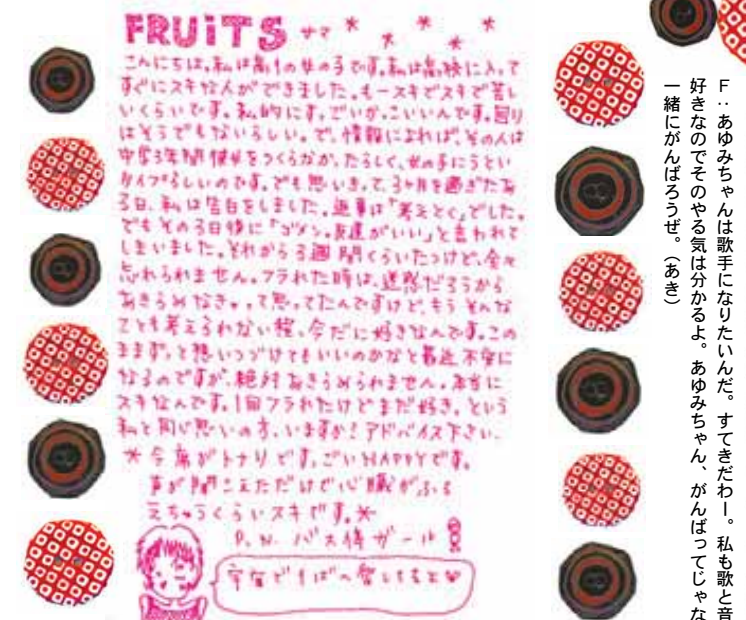 FRUiTS サマ
こんにちは。私は高1の女の子です。私は高校に入って
すぐにスキな人ができました。もースキでスキで苦し
いくらいです。私的にすっごいかっこいいんです。回り
はそうでもないらしい。で、情報によれば、その人は
中学3年間彼女をつくらなかったらしく、女の子にうとい
タイプらしいのです。でも思いきって、3ヶ月を過ぎたある
3日、私は告白をしました。返事は「考えとく」でした。
でもその3日後に「ゴメン。友達がいい」と言われて
しまいました。それから3週間くらいたつけど、全々
忘れられません。フラれた時は、迷惑だろうから
あきらめなきゃって思ってたんですけど、もうそんな
こととも考えられない程、今だに好きなんです。この
ままずっと想いつづけてもいいのかなと最近不安に
なるのですが、絶対あきらめられません。本当に
スキなんです。1回フラれたけどまだ好き。という
私と同じ思いの方、いますか?アドバイス下さい。
*今席がトナリです。ごいHAPPYです。
声が聞こえただけで心臓がふる
えちゃうくらいスキです。*
P.N. バス停ガール
F:あゆみちゃんは歌手になりたいんだ。すてきだわー。私も歌と音
好きなのでそのやる気は分かるよ。あゆみちゃん、がんばってじゃな
一緒にがんばろうぜ。(あき)